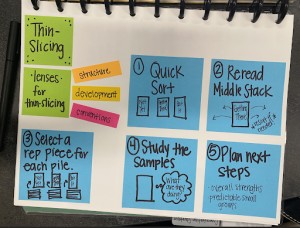 Thin-
Slicing
lenses
for
thin-slicing
structure
development
conventions
① Quick
Sort
② Reread
Middle Stack
Getting
There
③ Select a
rep piece for
each pile.
④ Study the
Samples
What
are they
doing?
⑤ Plan next
steps
-overall strengths
predictable small
groups